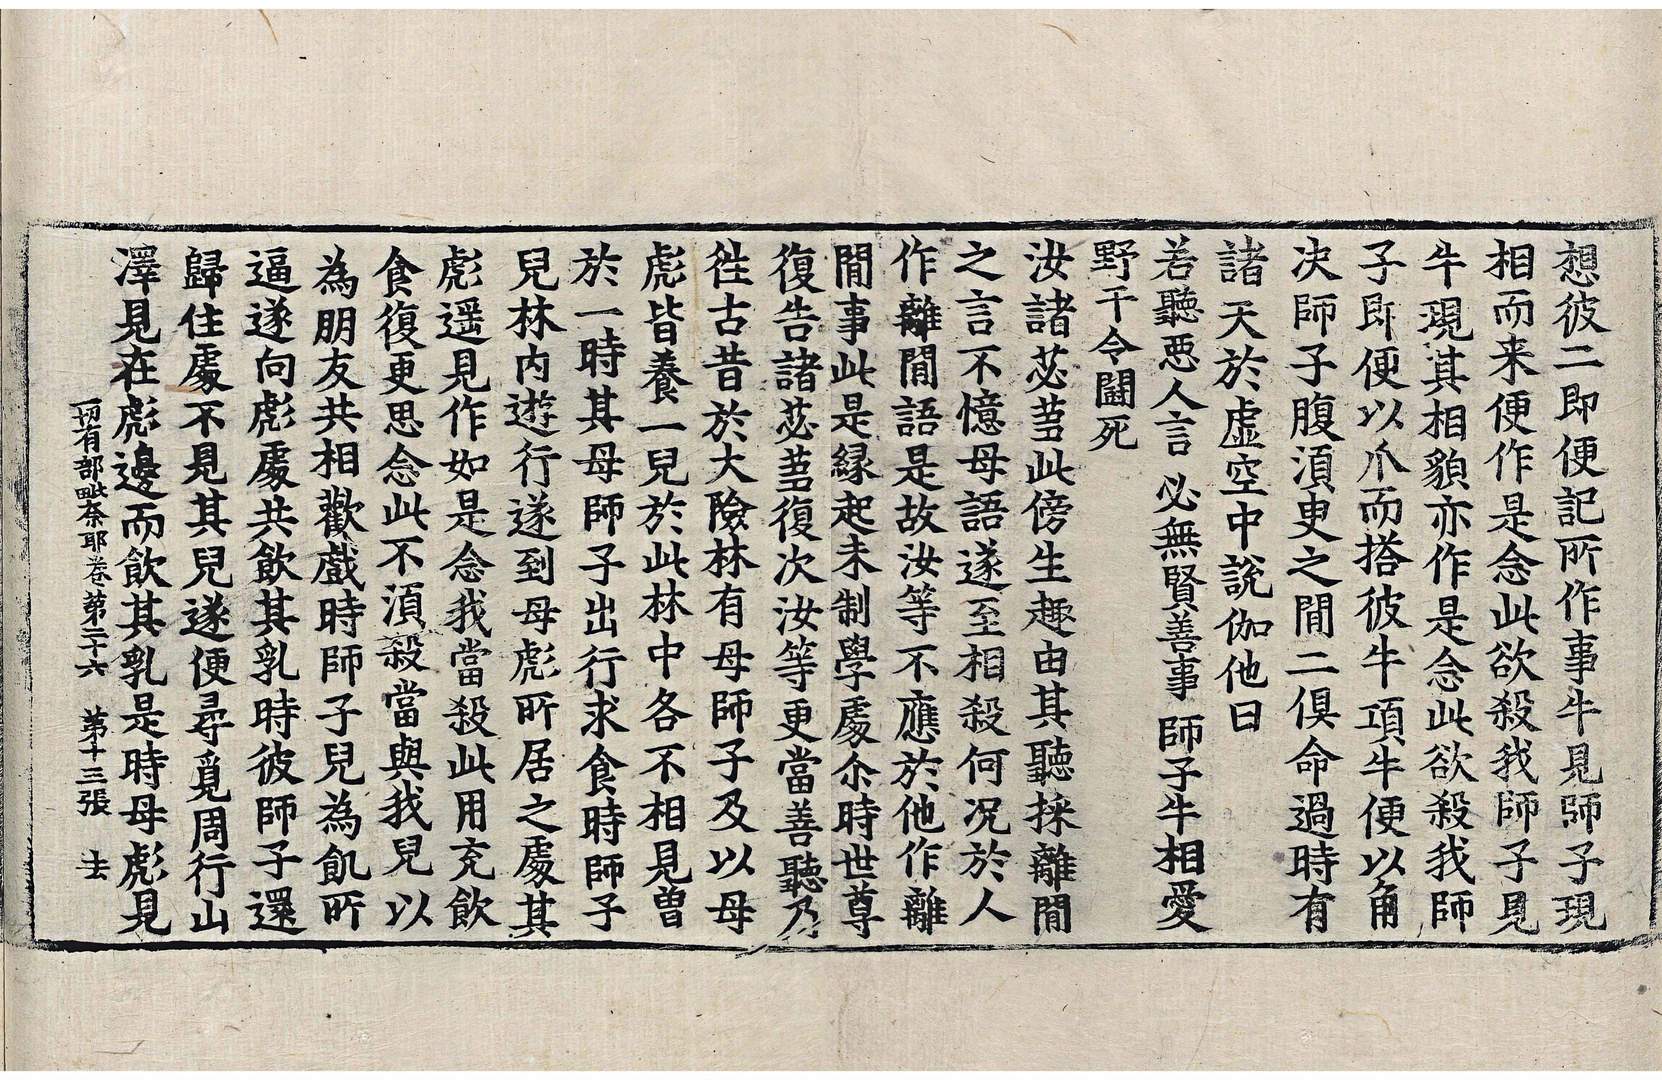 想彼二即便記所作事牛見師子現
相而来便作是念此欲殺我師子見
牛現其相貌亦作是念此欲殺我師
子即便以爪而搭彼牛項牛便以角
决師子腹湏臾之間二俱命過時有
諸天於虛空中說伽他曰
若聽惡人言 必無賢善事 師子牛相愛
野干令鬪死
汝諸苾蒭此傍生趣由其聽採離間
之言不憶母語遂至相殺何况於人
作離間語是故汝等不應於他作離
間事此是緣起未制學處尒時世尊
復告諸苾蒭復次汝等更當善聽乃
徃古昔於大險林有母師子及以母
彪皆養一兒於此林中各不相見曾
於一時其母師子出行求食時師子
兒林內遊行遂到母彪所居之處其
彪遥見作如是念我當殺此用充飲
食復更思念此不湏殺當與我兒以
為朋友共相歡戲時師子兒為飢所
逼遂向彪處共飲其乳時彼師子還
歸住處不見其兒遂便尋覓周行山
澤見在彪邊而飲其乳是時母彪見
一切有部毗奈耶卷第二十六 第十三張 去